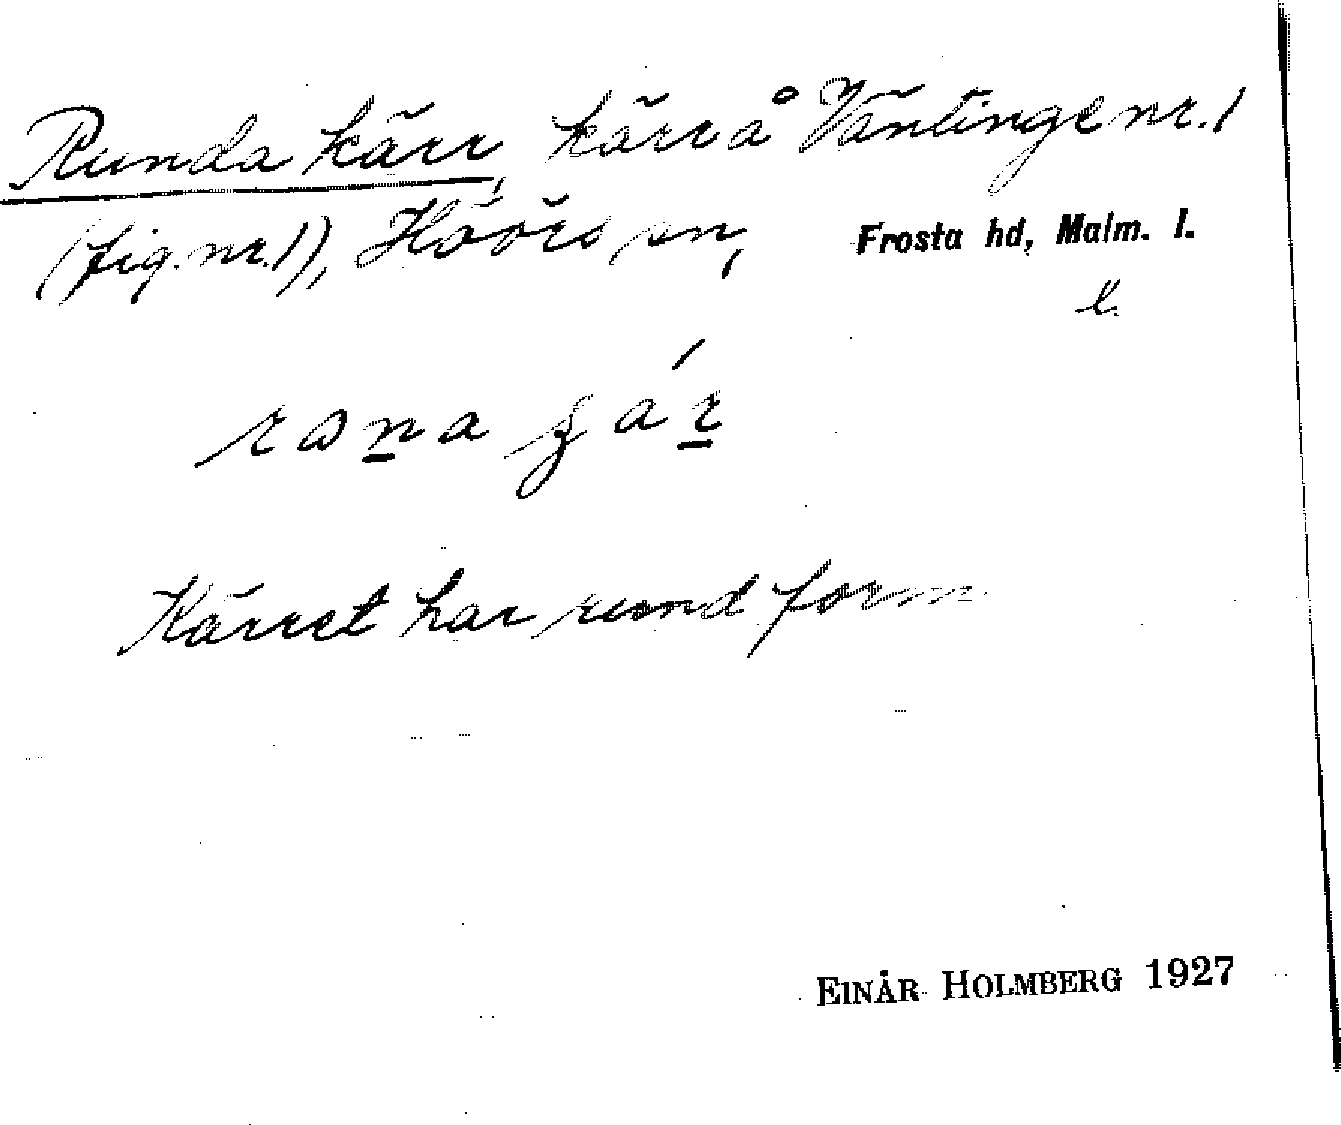 Runda kärr, kärr å Väntinge nr. 1
(fig. nr. 1), Höörs sn, Frosta hd, Malm. l.
l.
Kärret har rund form
EINAR HOLMBERG 1927